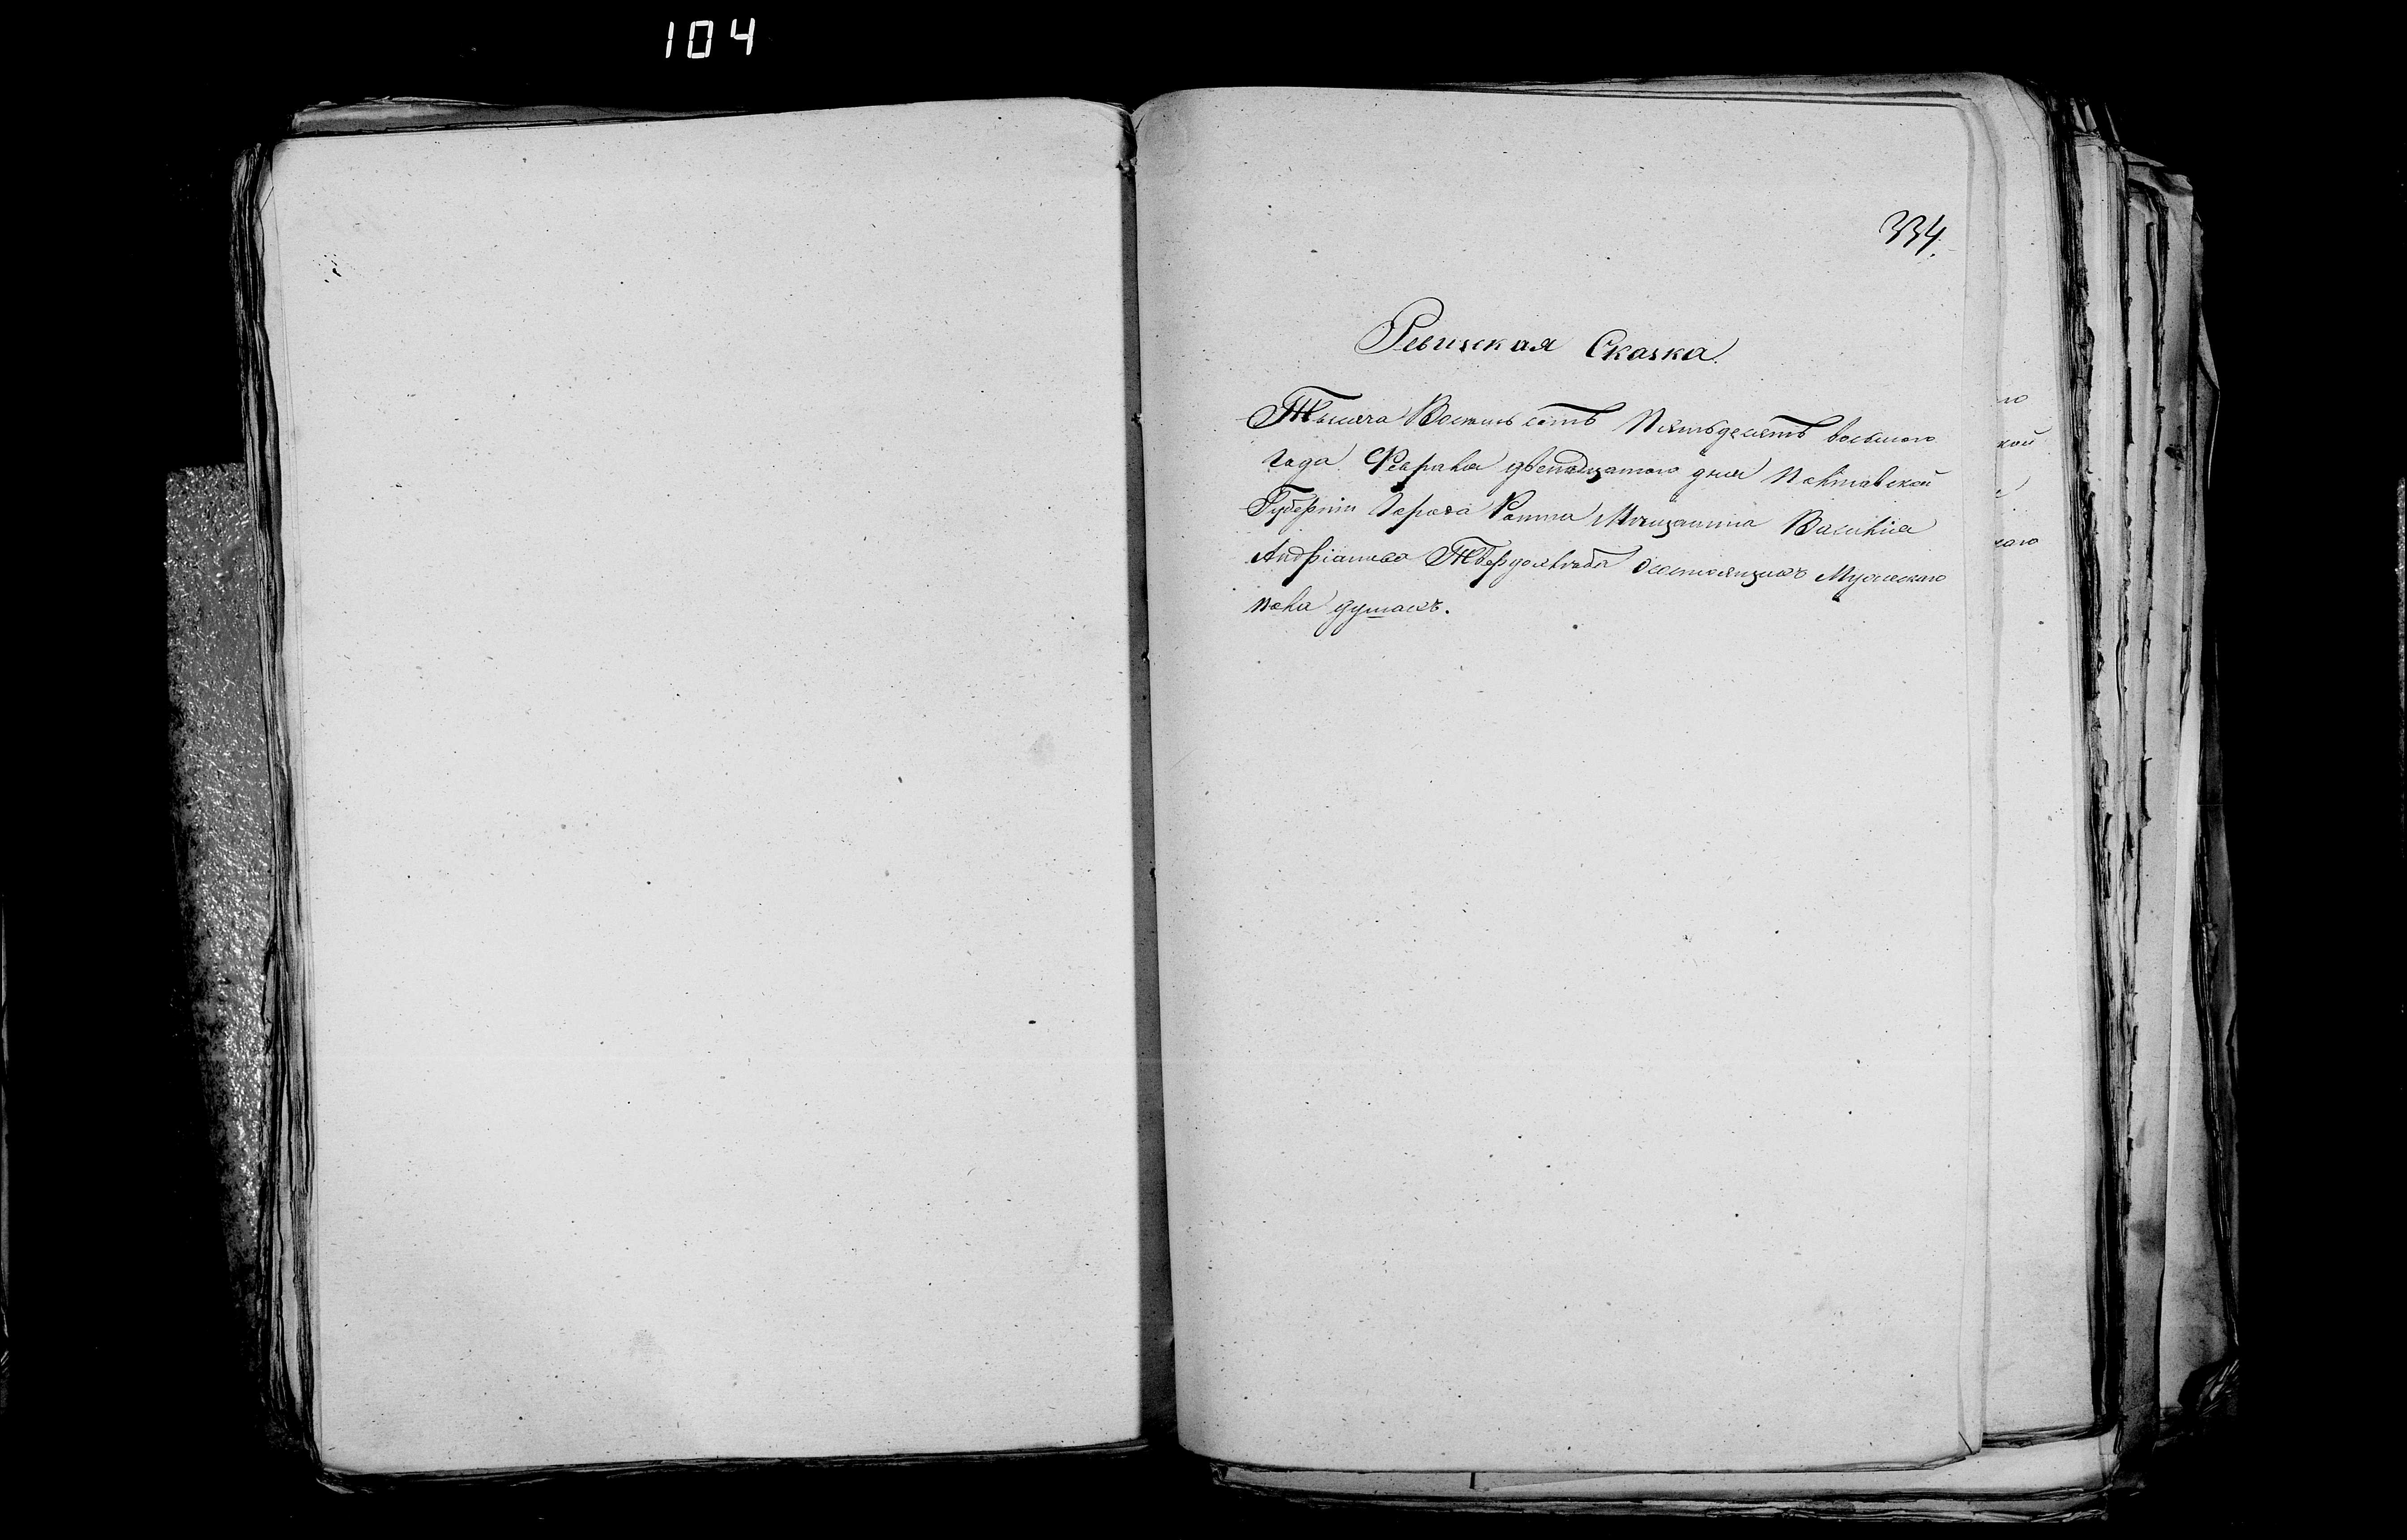 104
334.
Ревизская Сказка.
Тысяча Восемь сотъ Пятьдесятъ восьмого
года Февраля двенадцатого дня Полтавской
Губерніи Города Ромна Мещанина Василія
Андріанова Твердохлѣба Осостоящихъ Мужескаго
пола душахъ.
го
кой
каго